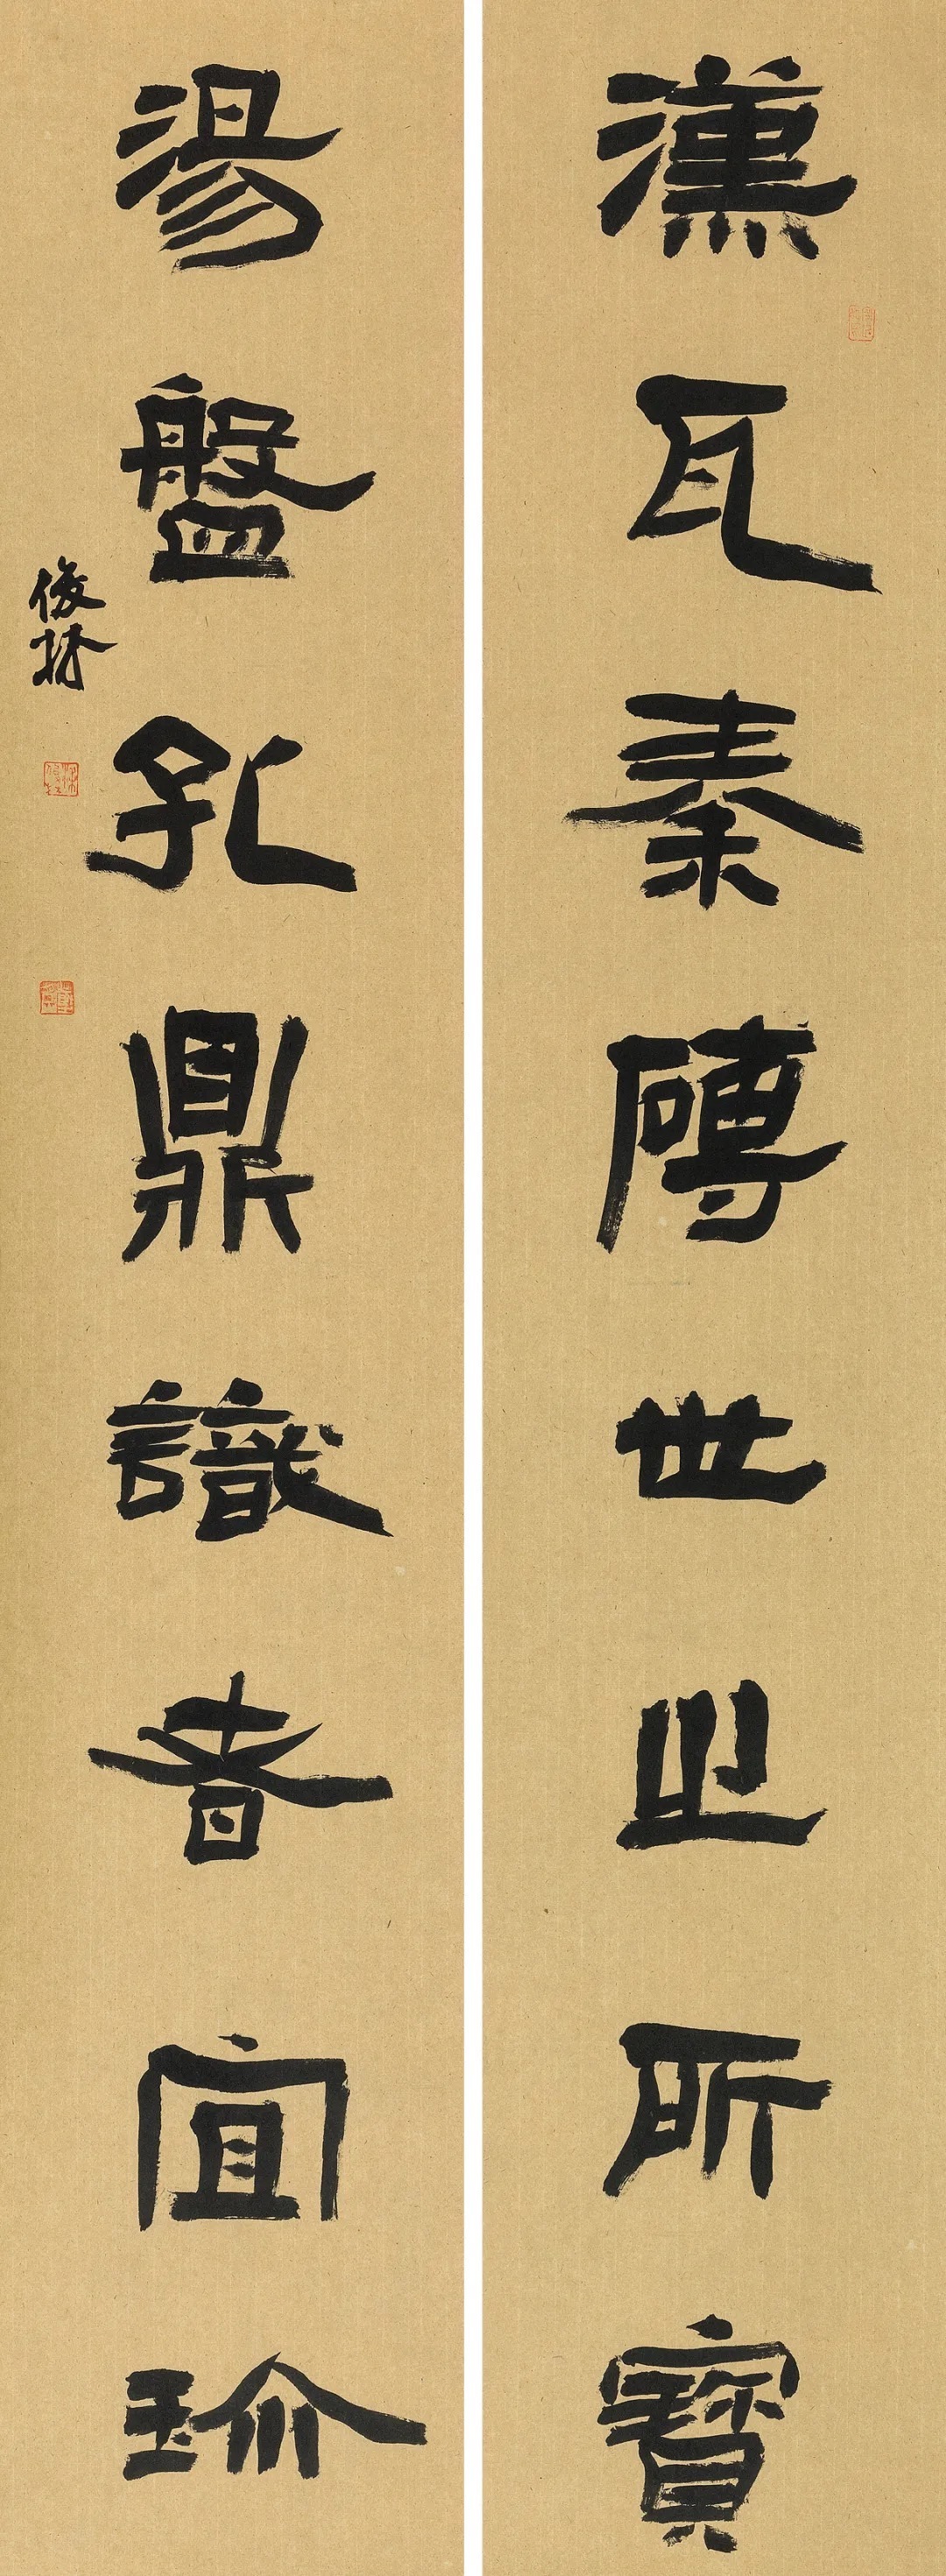 漢瓦秦磚世之所寶
湯盤孔鼎識者宜珍
俊林